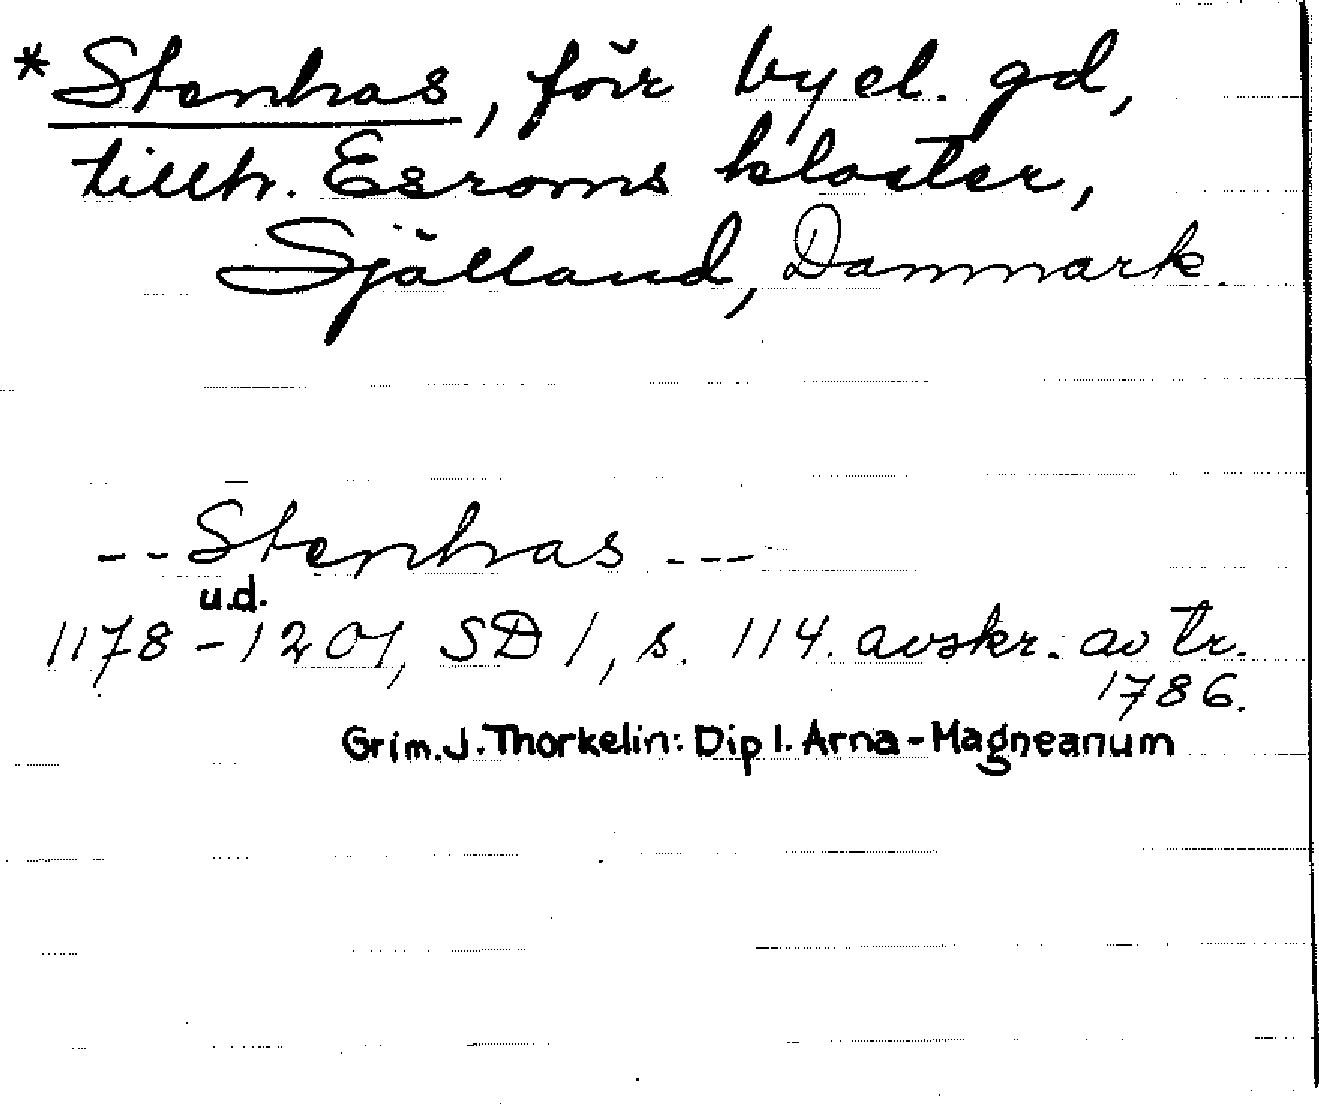 *Stenhas, förr by el. gd,
tillh. Esroms kloster,
Själland, Danmark.
--Stenhas ---
u.d.
1178-1201, SD 1, s. 114. avskr. av tr.
1786.
Grim. J. Thorkelin: Dipl. Arna-Magneanum